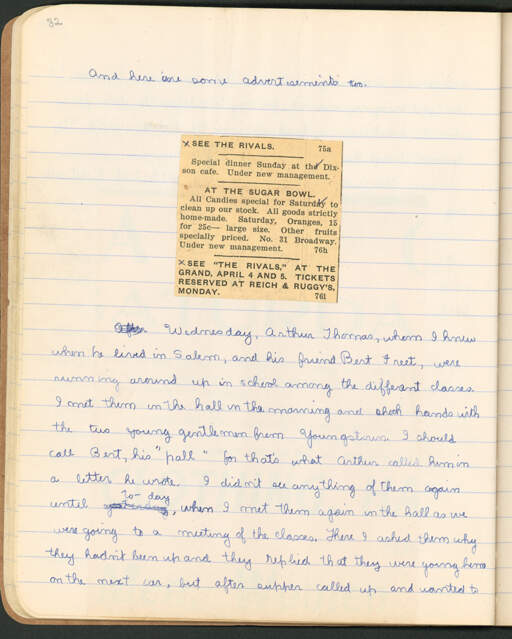 82
And here are some advertisements too.
SEE THE RIVALS. 75a
Special dinner Sunday at the Dix-
son cafe. Under new management.
AT THE SUGAR BOWL.
All Candies special for Saturday to
clean up our stock. All goods strictly
home-made. Saturday, Oranges, 15
for 25c— large size. Other fruits
specially priced. No. 31 Broadway.
Under new management. 76h
SEE "THE RIVALS," AT THE
GRAND, APRIL 4 AND 5. TICKETS
RESERVED AT REICH & RUGGY'S,
MONDAY. 76l
Wednesday, Arthur Thomas, whom I knew
when he lived in Salem, and his friend Bert Treet, were
running around up in school among the different classes.
I met them in the hall in the morning and shook hands with
the two young gentlemen from Youngstown. I should
call Bert, his "pall" for that's what Arthur called him in
a letter he wrote. I didn't see anything of them again
to-day
until yesterday, when I met them again in the hall as we
were going to a meeting of the classes. Here I asked them why
they hadn't been up and they replied that they were going home
on the next car, but after supper called up and wanted to